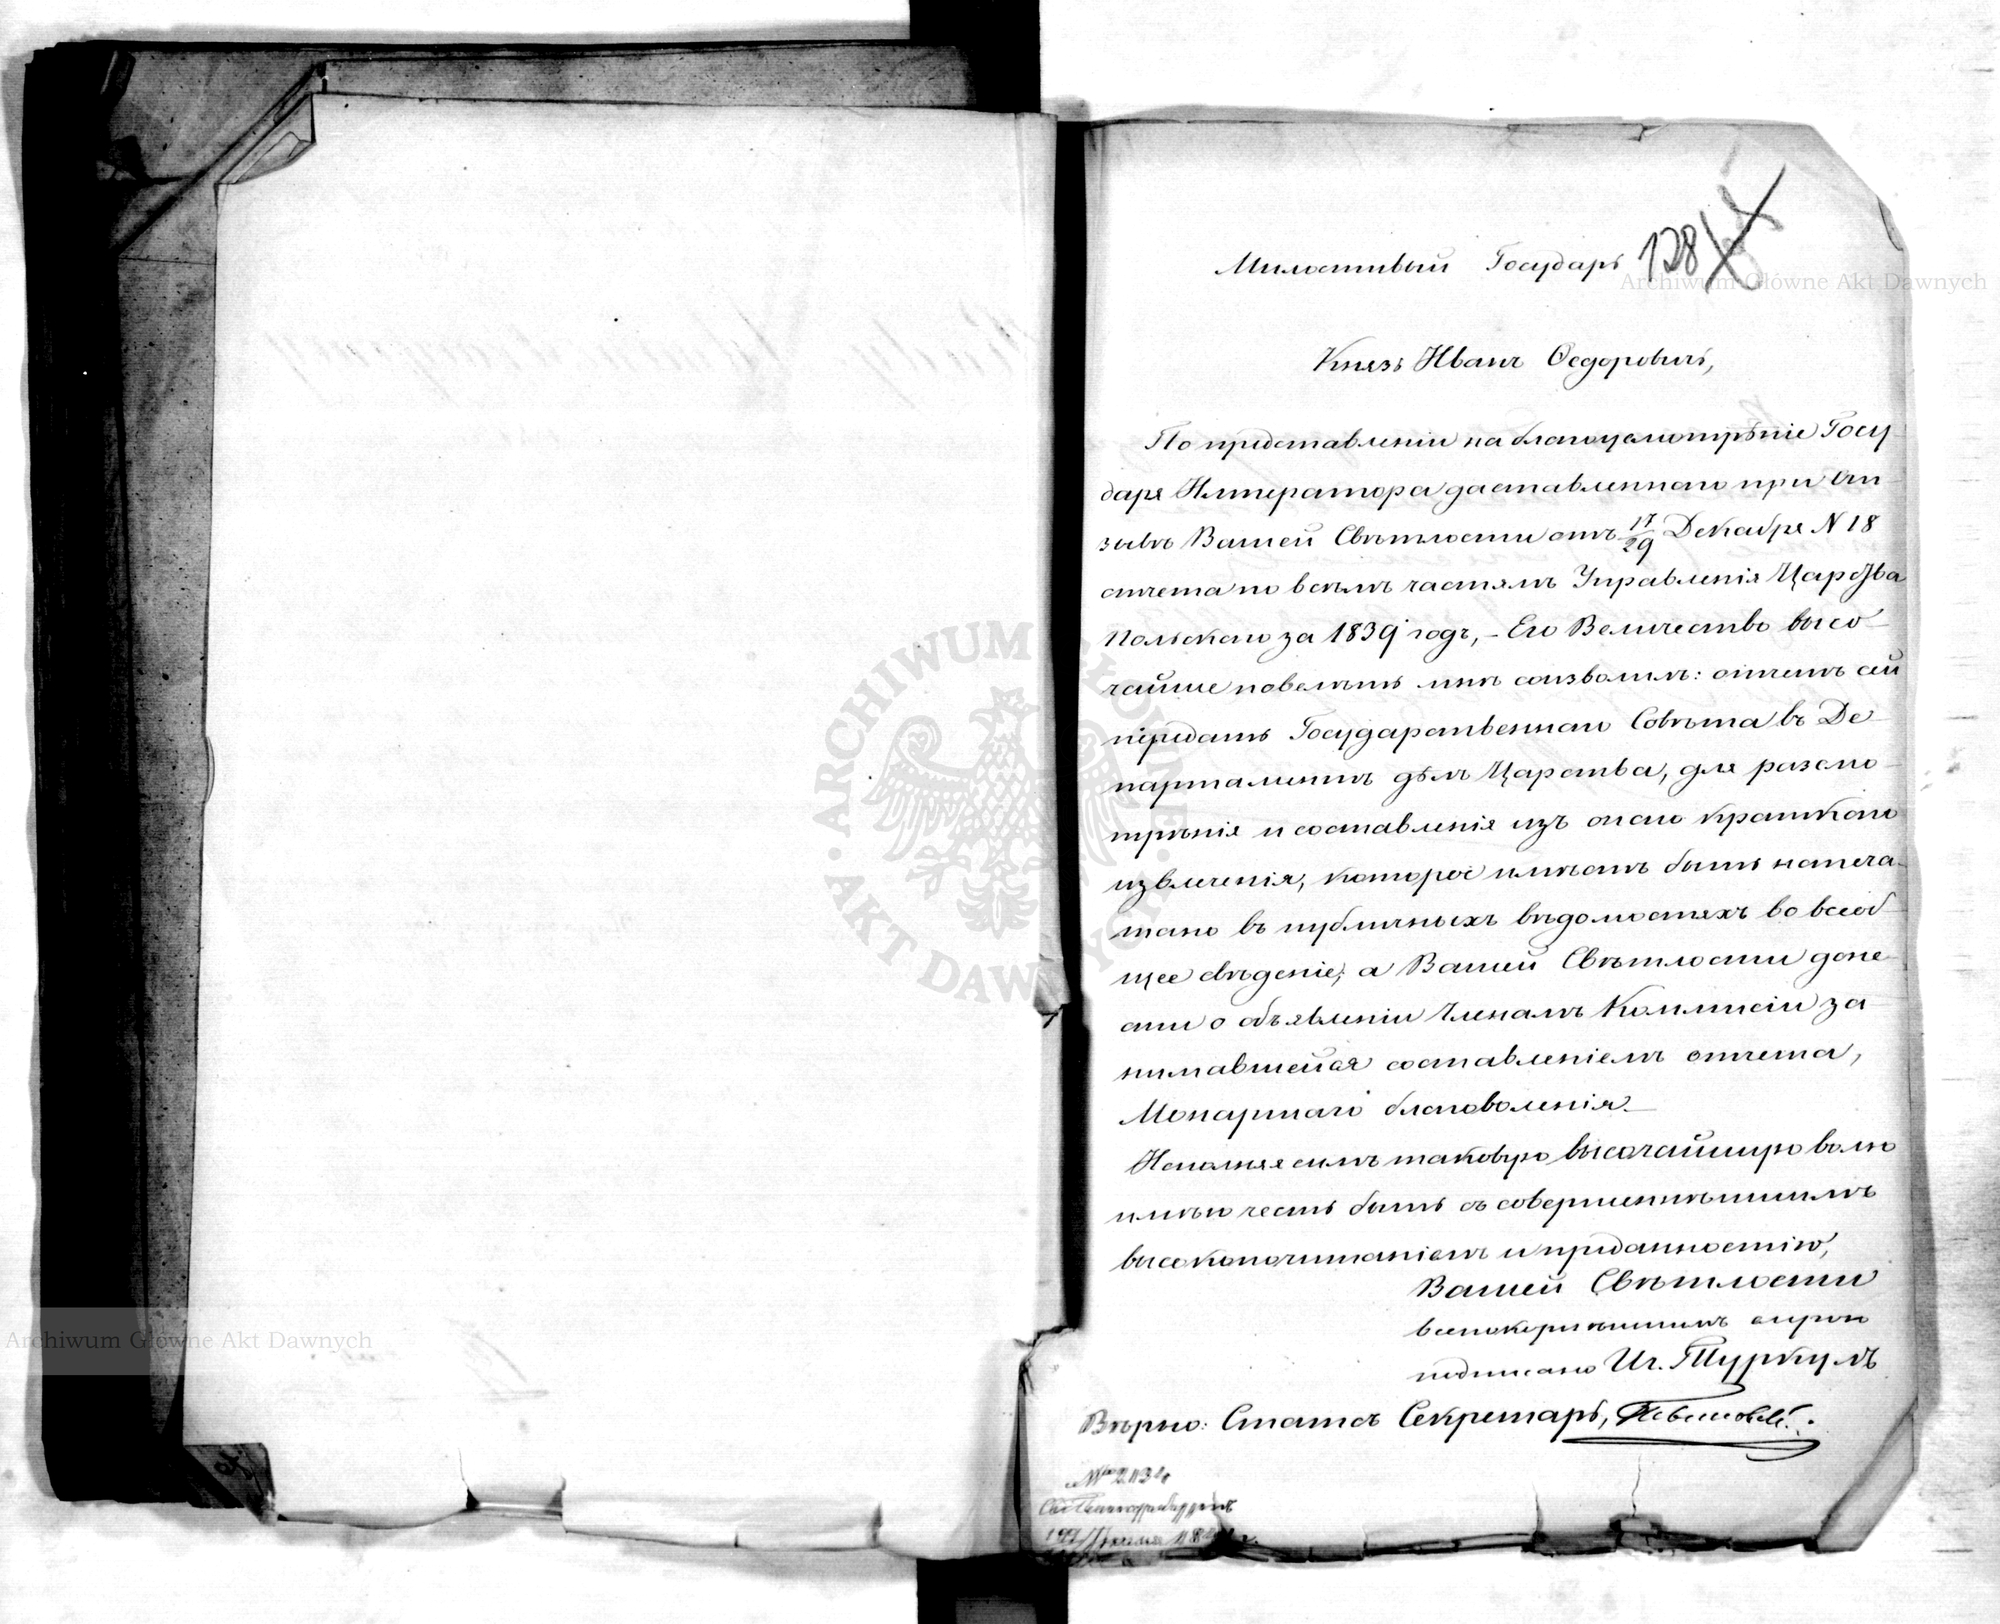 128
Милостивый Государь
Князь Иванъ Ѳедоровичъ,
По представленіи на благоусмотрѣніе Госу
даря Императора доставленнаго при от
зывѣ Вашей Свѣтлости отъ 17/29 Декабря N 18
отчета по всѣмъ частямъ Управленія Царства
Польскаго за 1839 годъ, – Его Величество высо
чайше повелѣть мнѣ соизволилъ: отчетъ сей
передать Государственнаго Совѣта въ Де
партаментъ дѣлъ Царства, для разсмо
трѣнія и составленія изъ онаго краткаго
извлеченія, которое имѣетъ быть напеча
тано въ публичныхъ вѣдомостяхъ во всеоб
щее свѣденіе; а Вашей Свѣтлости доне
сти о объявленіи Членамъ Коммисіи за
нимавшейся составленіемъ отчета,
Монаршаго благоволенія.
Исполняя симъ таковую высочайшую волю
имѣю честь быть съ совершеннѣйшимъ
высокопочитаніемъ и преданностію,
Вашей Свѣтлости
всепокорнѣйшимъ слугою
подписано Иг. Туркулъ
Вѣрно: Статсъ Секретарь,
Archiwum Główne Akt Dawnych
ARCHIWUM GŁÓWNE AKT DAWNYCH
Archiwum Główne Akt Dawnych